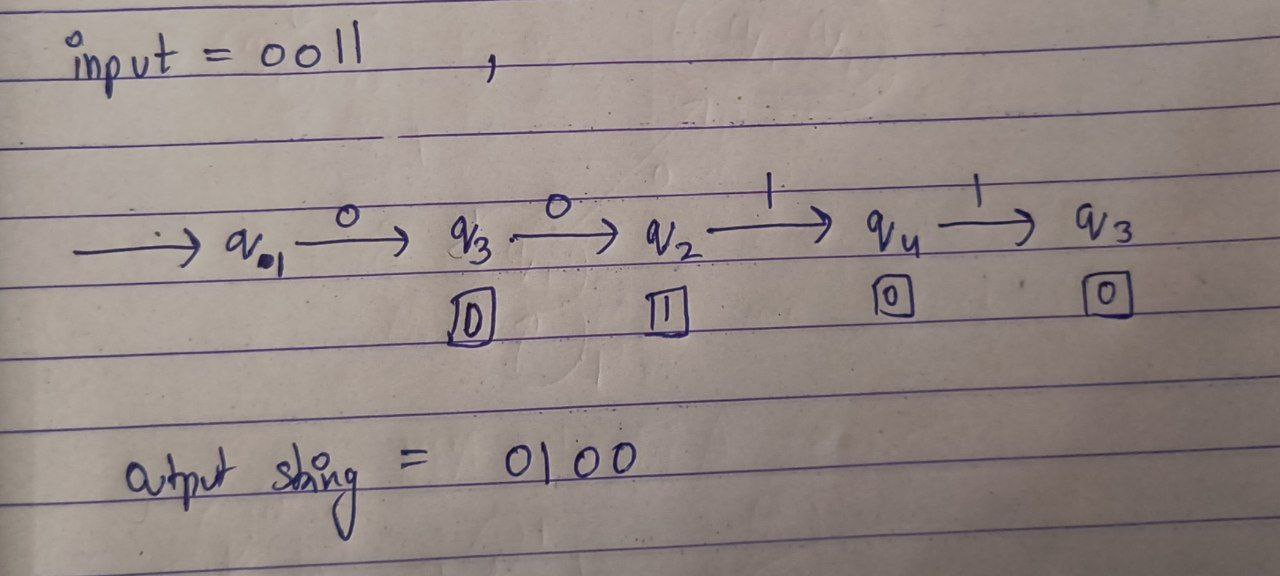 input = 0011 ,
0 0 1 1
→ q1 → q3 → q2 → q4 → q3
0 1 0 0
output string = 0100